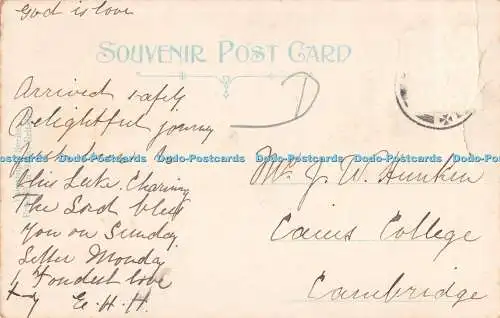 God is love
SOUVENIR POST CARD
Arrived safely
Delightful journey
just here by
this Lake. Charming
The Lord bless
you on Sunday
Letter Monday
Fondest love
E. H. H.
Mr. J. W. Hunkin
Caius College
Cambridge
Dodo-Postcards Dodo-Postcards Dodo-Postcards Dodo-Postcards Dodo-Postcards